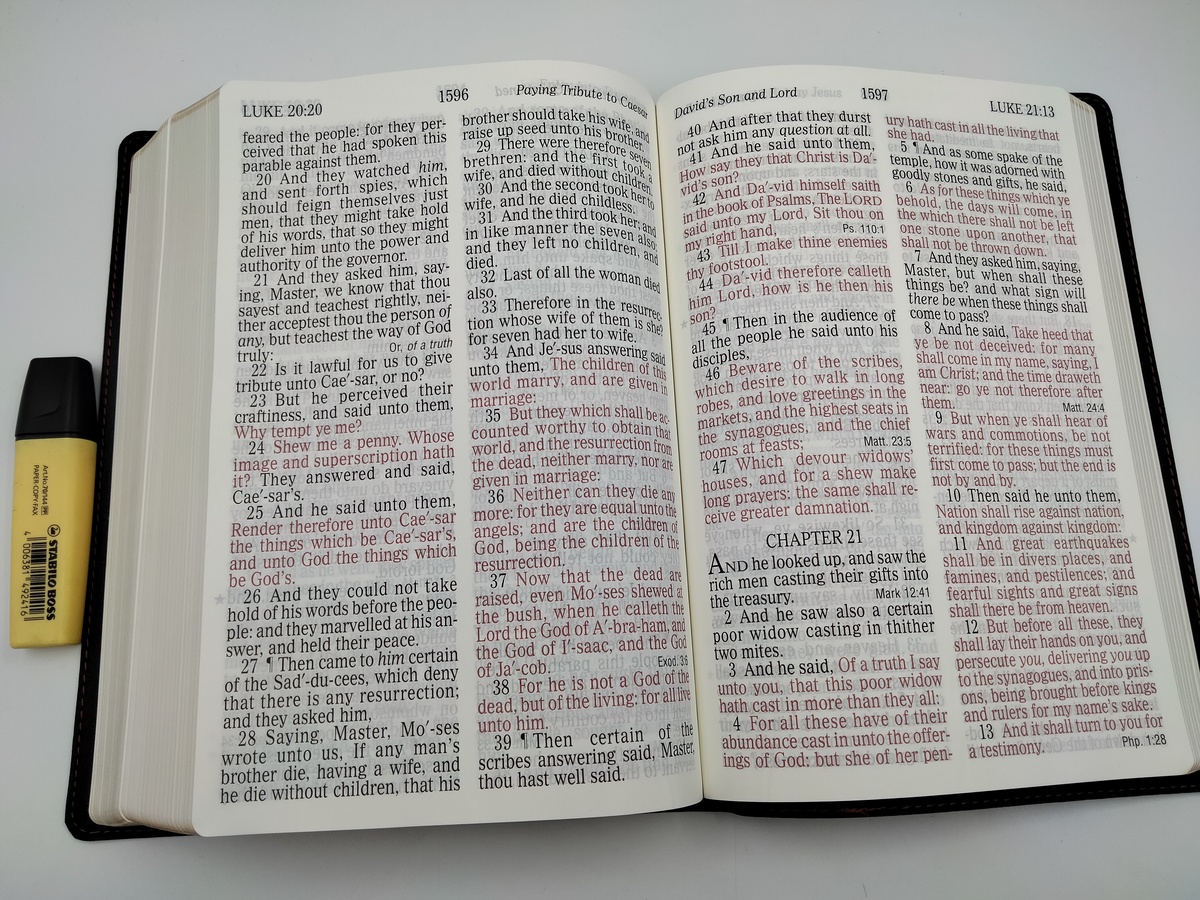 LUKE 20:20
1596
Paying Tribute to Caesar
feared the people: for they per-
ceived that he had spoken this
parable against them.
20 And they watched him,
and sent forth spies, which
should feign themselves just
men, that they might take hold
of his words, that so they might
deliver him unto the power and
authority of the governor.
21 And they asked him, say-
ing, Master, we know that thou
sayest and teachest rightly, nei-
ther acceptest thou the person of
any, but teachest the way of God
truly: Or, of a truth
22 Is it lawful for us to give
tribute unto Cae′-sar, or no?
23 But he perceived their
craftiness, and said unto them,
Why tempt ye me?
24 Shew me a penny. Whose
image and superscription hath
it? They answered and said,
Cae′-sar's.
25 And he said unto them,
Render therefore unto Cae′-sar
the things which be Cae′-sar's,
and unto God the things which
be God's.
26 And they could not take
hold of his words before the peo-
ple: and they marvelled at his an-
swer, and held their peace.
27 ¶ Then came to him certain
of the Sad′-du-cees, which deny
that there is any resurrection;
and they asked him,
28 Saying, Master, Mo′-ses
wrote unto us, If any man's
brother die, having a wife, and
he die without children, that his
brother should take his wife, and
raise up seed unto his brother.
29 There were therefore seven
brethren: and the first took a
wife, and died without children.
30 And the second took her to
wife, and he died childless.
31 And the third took her; and
in like manner the seven also:
and they left no children, and
died.
32 Last of all the woman died
also.
33 Therefore in the resurrec-
tion whose wife of them is she?
for seven had her to wife.
34 And Je′-sus answering said
unto them, The children of this
world marry, and are given in
marriage:
35 But they which shall be ac-
counted worthy to obtain that
world, and the resurrection from
the dead, neither marry, nor are
given in marriage:
36 Neither can they die any
more: for they are equal unto the
angels; and are the children of
God, being the children of the
resurrection.
37 Now that the dead are
raised, even Mo′-ses shewed at
the bush, when he calleth the
Lord the God of A′-bra-ham, and
the God of I′-saac, and the God
of Ja′-cob. Exod. 3:6
38 For he is not a God of the
dead, but of the living: for all live
unto him.
39 ¶ Then certain of the
scribes answering said, Master,
thou hast well said.
David's Son and Lord
1597
LUKE 21:13
40 And after that they durst
not ask him any question at all.
41 And he said unto them,
How say they that Christ is Da′-
vid's son?
42 And Da′-vid himself saith
in the book of Psalms, The LORD
said unto my Lord, Sit thou on
my right hand, Ps. 110:1
43 Till I make thine enemies
thy footstool.
44 Da′-vid therefore calleth
him Lord, how is he then his
son?
45 ¶ Then in the audience of
all the people he said unto his
disciples,
46 Beware of the scribes,
which desire to walk in long
robes, and love greetings in the
markets, and the highest seats in
the synagogues, and the chief
rooms at feasts; Matt. 23:5
47 Which devour widows'
houses, and for a shew make
long prayers: the same shall re-
ceive greater damnation.
CHAPTER 21
AND he looked up, and saw the
rich men casting their gifts into
the treasury. Mark 12:41
2 And he saw also a certain
poor widow casting in thither
two mites.
3 And he said, Of a truth I say
unto you, that this poor widow
hath cast in more than they all:
4 For all these have of their
abundance cast in unto the offer-
ings of God: but she of her pen-
ury hath cast in all the living that
she had.
5 ¶ And as some spake of the
temple, how it was adorned with
goodly stones and gifts, he said,
6 As for these things which ye
behold, the days will come, in
the which there shall not be left
one stone upon another, that
shall not be thrown down.
7 And they asked him, saying,
Master, but when shall these
things be? and what sign will
there be when these things shall
come to pass?
8 And he said, Take heed that
ye be not deceived: for many
shall come in my name, saying, I
am Christ; and the time draweth
near: go ye not therefore after
them. Matt. 24:4
9 But when ye shall hear of
wars and commotions, be not
terrified: for these things must
first come to pass; but the end is
not by and by.
10 Then said he unto them,
Nation shall rise against nation,
and kingdom against kingdom:
11 And great earthquakes
shall be in divers places, and
famines, and pestilences; and
fearful sights and great signs
shall there be from heaven.
12 But before all these, they
shall lay their hands on you, and
persecute you, delivering you up
to the synagogues, and into pris-
ons, being brought before kings
and rulers for my name's sake.
13 And it shall turn to you for
a testimony. Php. 1:28
Art.No. 70/144
PAPER-COPY-FAX
STABILO BOSS
4 006381 492416